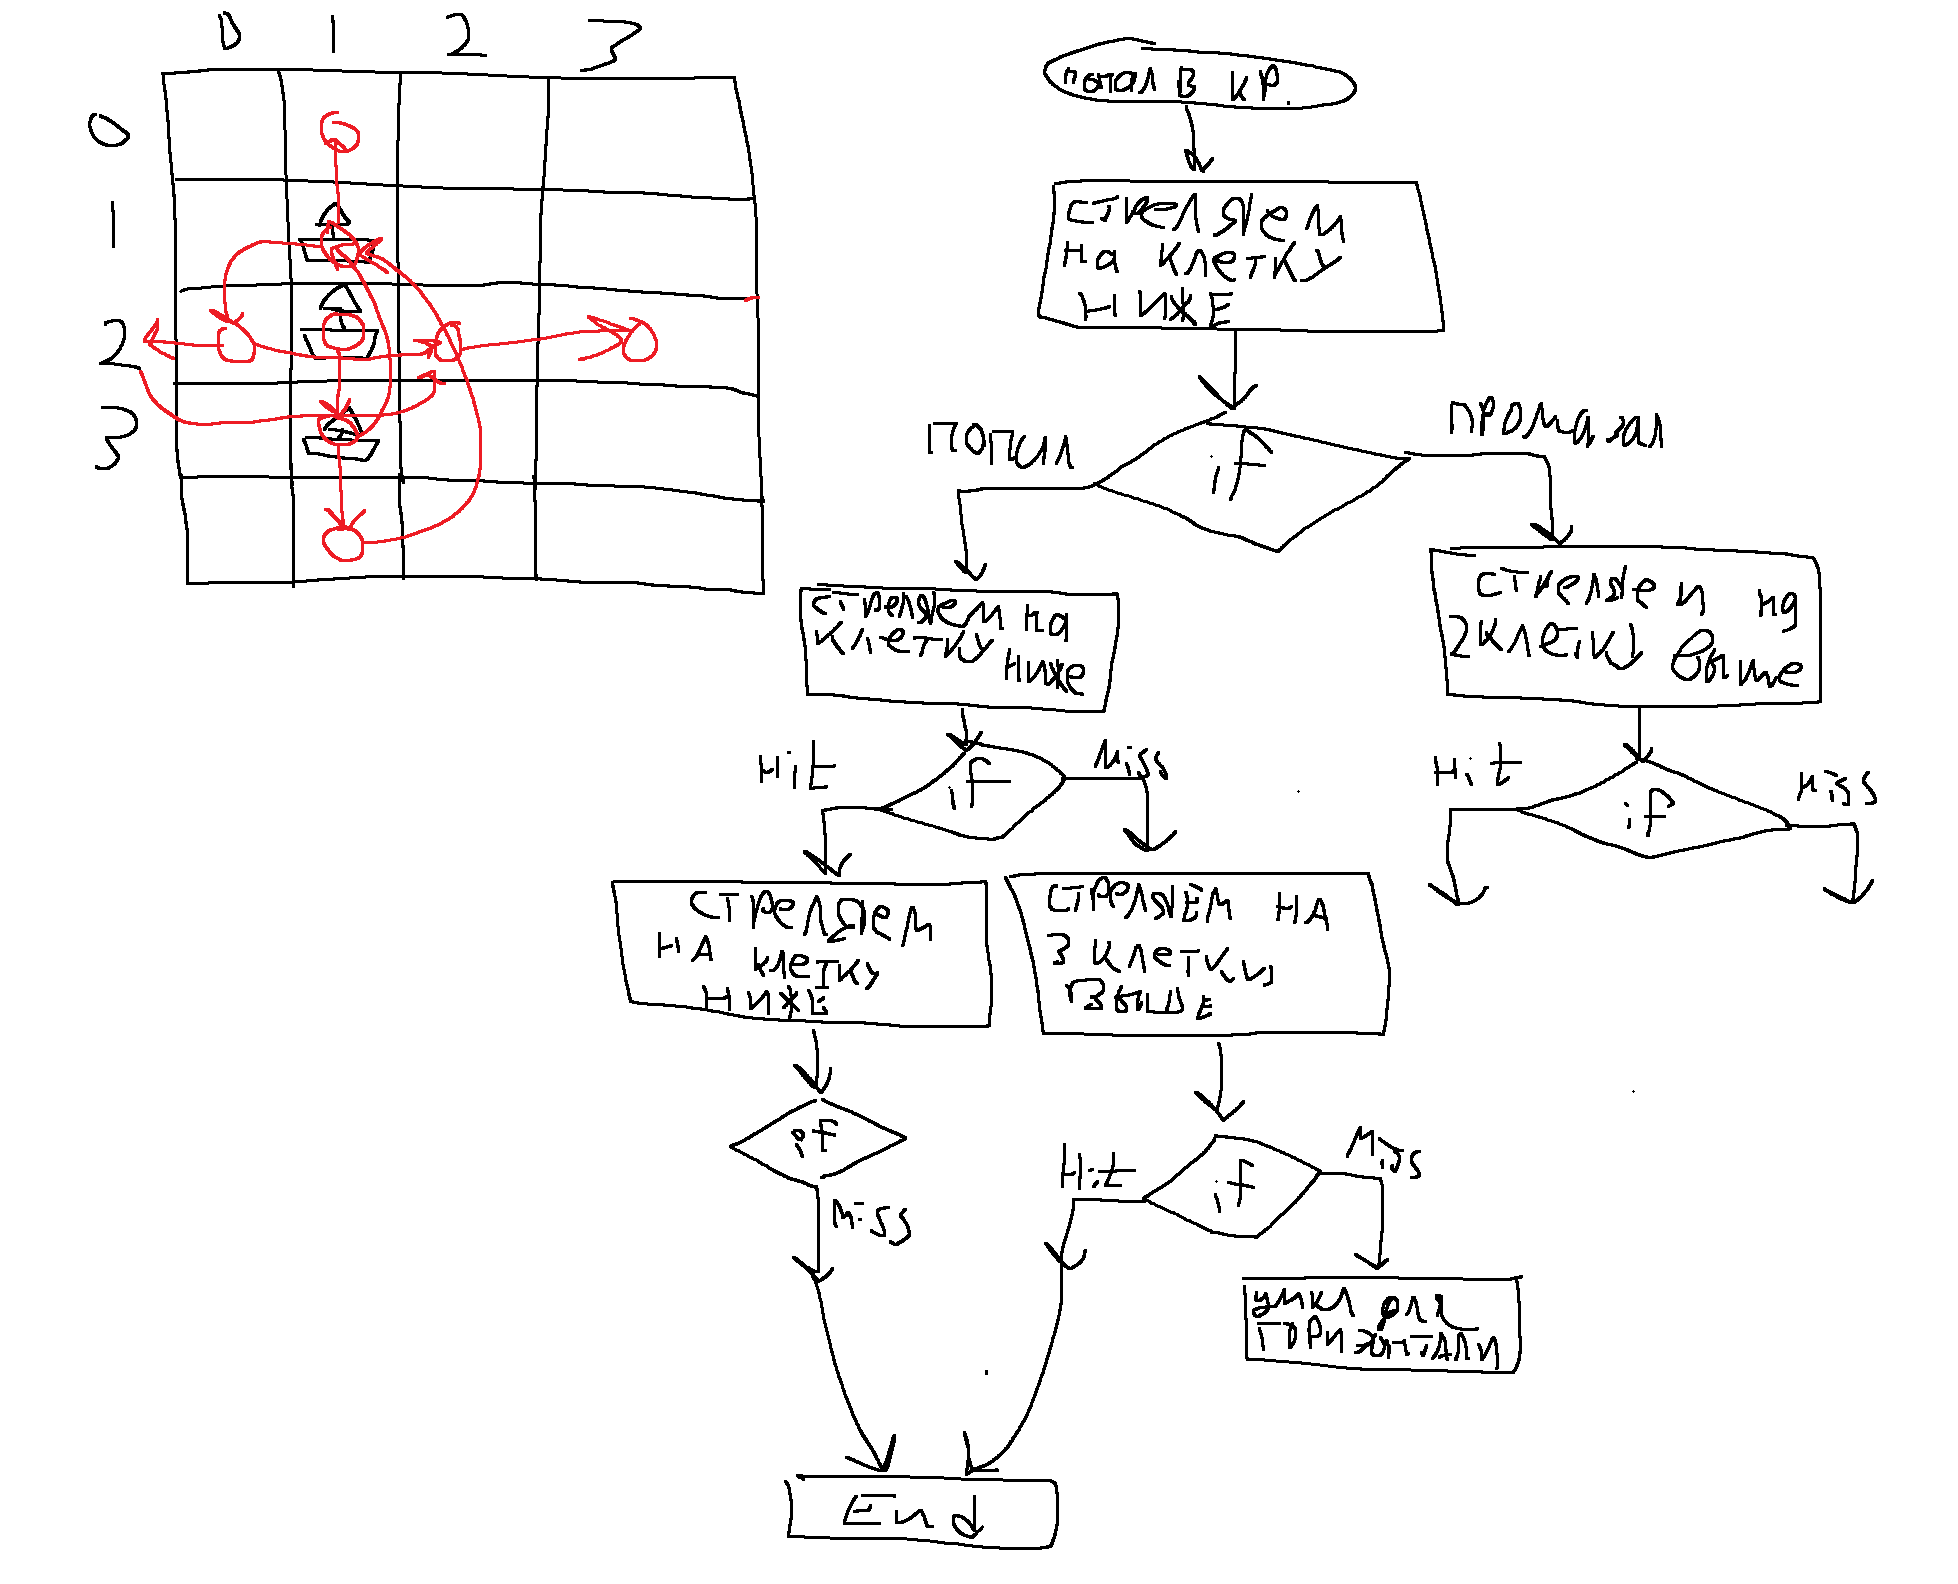 0 1 2 3
0
1
2
3
попал в кр.
стреляем
на клетку
ниже
if
попал
промазал
стреляем на
клетку ниже
стреляем на
2 клетки выше
if
Hit
Miss
if
Hit
Miss
стреляем
на клетку
ниже
стреляем на
3 клетки
выше
if
Miss
if
Hit
Miss
цикл для
горизонтали
End